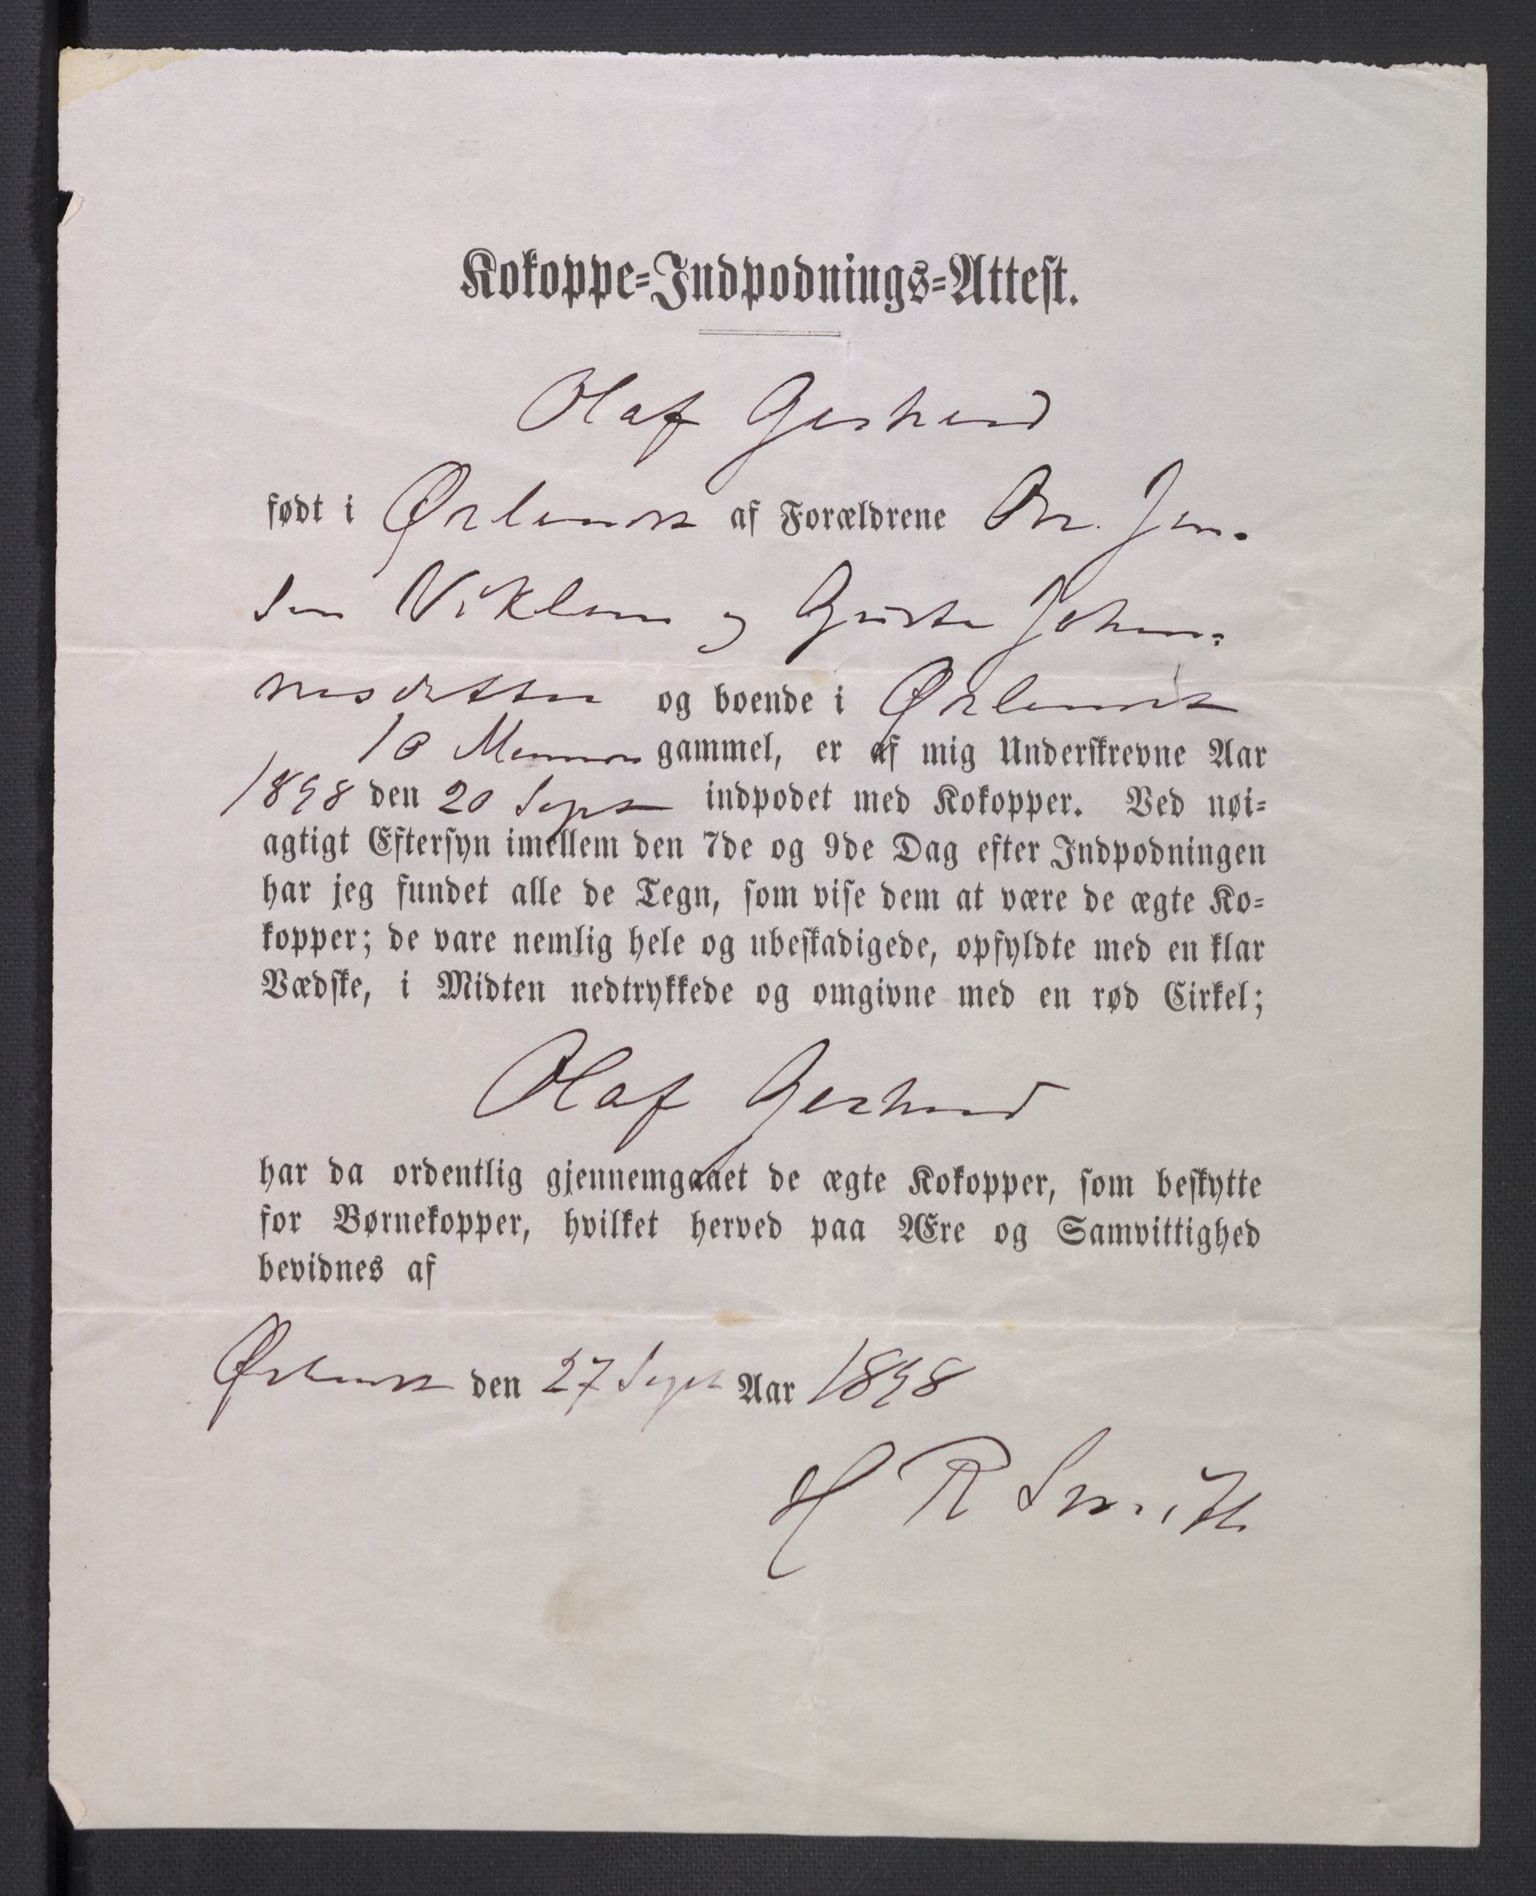 Kokoppe-Indpodnings-Attest.
Olaf Gerhard
født i Ørlandet af Forældrene Ole Jen-
sen Viklem og Gurte Johan-
nesdatter og boende i Ørlandet
10 Maaneder gammel, er af mig Underskrevne Aar
1898 den 20 Sept indpodet med Kokopper. Ved nøi-
agtigt Eftersyn imellem den 7de og 9de Dag efter Indpodningen
har jeg fundet alle de Tegn, som vise dem at være de ægte Ko-
kopper; de vare nemlig hele og ubeskadigede, opfyldte med en klar
Vædske, i Midten nedtrykkede og omgivne med en rød Cirkel;
Olaf Gerhard
har da ordentlig gjennemgaaet de ægte Kokopper, som beskytte
for Børnekopper, hvilket herved paa Ære og Samvittighed
bevidnes af
Ørlandet den 27 Sept Aar 1898
H R Smith